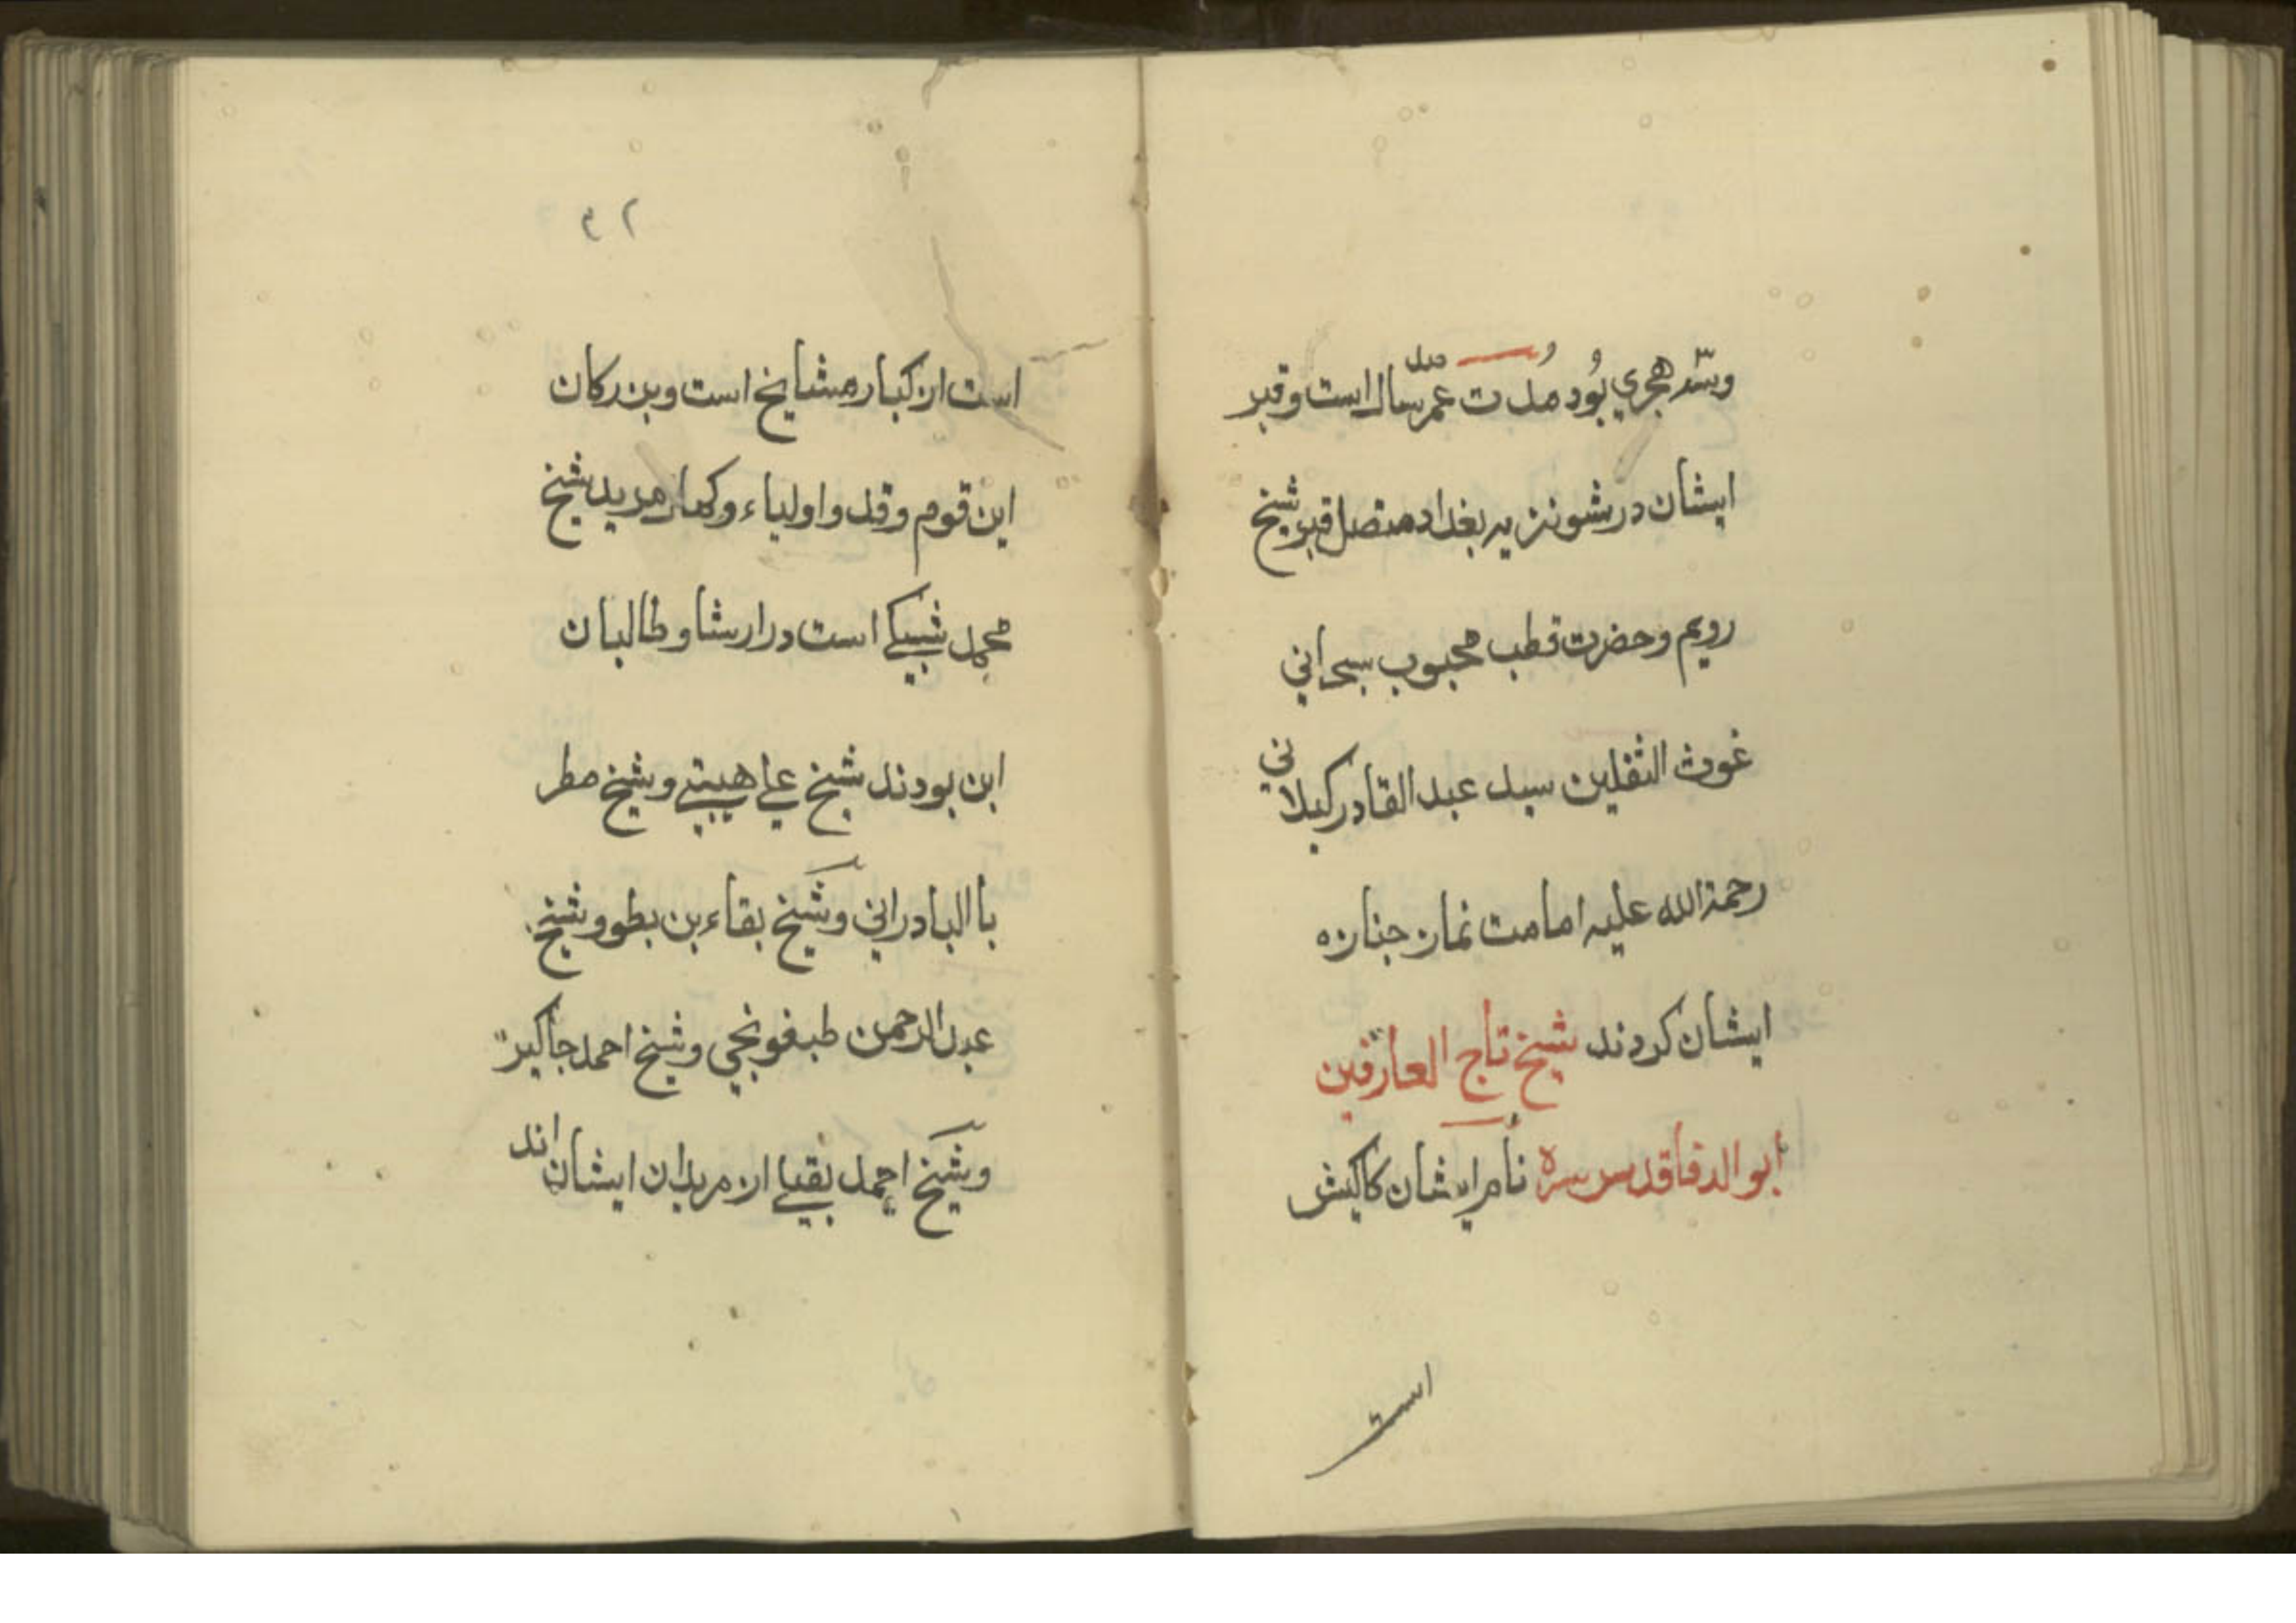 وسه هجري بُود مُدت عمر سال است و قبر
ایشان در شونزیه بغداد متصل قبر شیخ
رویم و حضرت قطب محبوب سبحاني
غوث الثقلین سید عبدالقادر کیلاني
رحمة الله علیه امامت نماز جنازه
ایشان کردند شیخ تاج العارفین
ابو الدفا قدس سره نام ایشان کاکیش
است
۳۲
است از کبار مشایخ است و بزرکان
این قوم و قدوا ولیاء و کبار مرید شیخ
محمد شبیکے است در ارشاو طالبان
این بودند شیخ علے هیتے و شیخ مطر
با البادراني و شیخ بقاء بن بطو و شیخ
عبدالرحمن طبفونجي و شیخ احمد جاکیر
و شیخ احمد بقیلے از مریدان ایشان اند